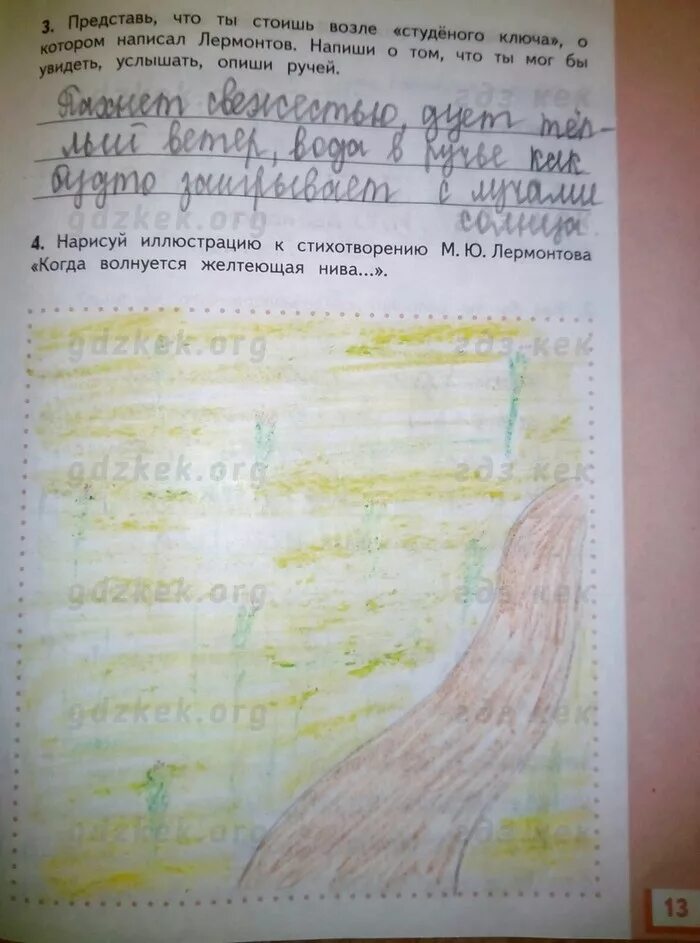 3. Представь, что ты стоишь возле «студёного ключа», о
котором написал Лермонтов. Напиши о том, что ты мог бы
увидеть, услышать, опиши ручей.
гдз кек
Пахнет свежестью, дует тёп-
лый ветер, вода в ручье как
будто заигрывает с лучами
солнца.
gdzkek.org
4. Нарисуй иллюстрацию к стихотворению М. Ю. Лермонтова
«Когда волнуется желтеющая нива...».
gdzkek.org гдз кек
gdzkek.org гдз кек
gdzkek.org гдз кек
gdzkek.org гдз кек
gdzkek.org гдз кек
13